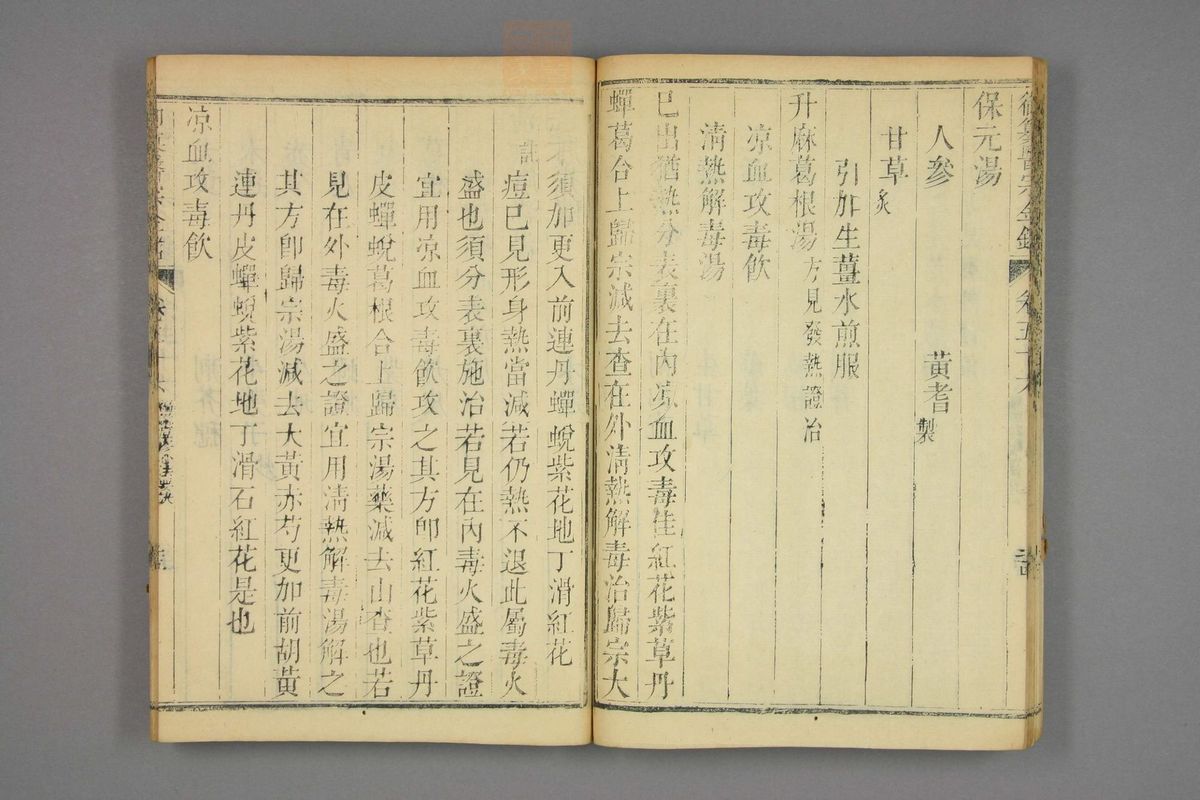 御纂醫宗金鑑 卷五十六
保元湯
人參 黃耆製
甘草炙
引加生薑水煎服
升麻葛根湯方見發熱證治
凉血攻毒飲
清熱解毒湯
已出猶熱分表裏在內凉血攻毒佳紅花紫草丹
蟬葛合上歸宗減去查在外清熱解毒治歸宗大
赤須加更入前連丹蟬蛻紫花地丁滑紅花
註痘已見形身熱當減若仍熱不退此屬毒火
盛也須分表裏施治若見在內毒火盛之證
宜用凉血攻毒飲攻之其方卽紅花紫草丹
皮蟬蛻葛根合上歸宗湯藥減去山查也若
見在外毒火盛之證宜用清熱解毒湯解之
其方卽歸宗湯減去大黃赤芍更加前胡黃
連丹皮蟬蛻紫花地丁滑石紅花是也
凉血攻毒飲